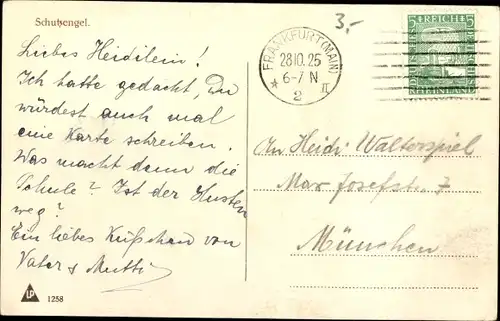 Schutzengel.
Liebes Heidilein!
Ich hatte gedacht, Du
würdest auch mal
eine Karte schreiben.
Was macht denn die
Schule? Ist der Husten
weg?
Ein liebes Küsschen von
Vater & Mutti
LP
1258
3.-
FRANKFURT (MAIN)
28.10.25
6-7 N
* 2 II
5 REICH 5
RHEINLAND
An Heidi Walterspiel
Max Josefstr. 7
München